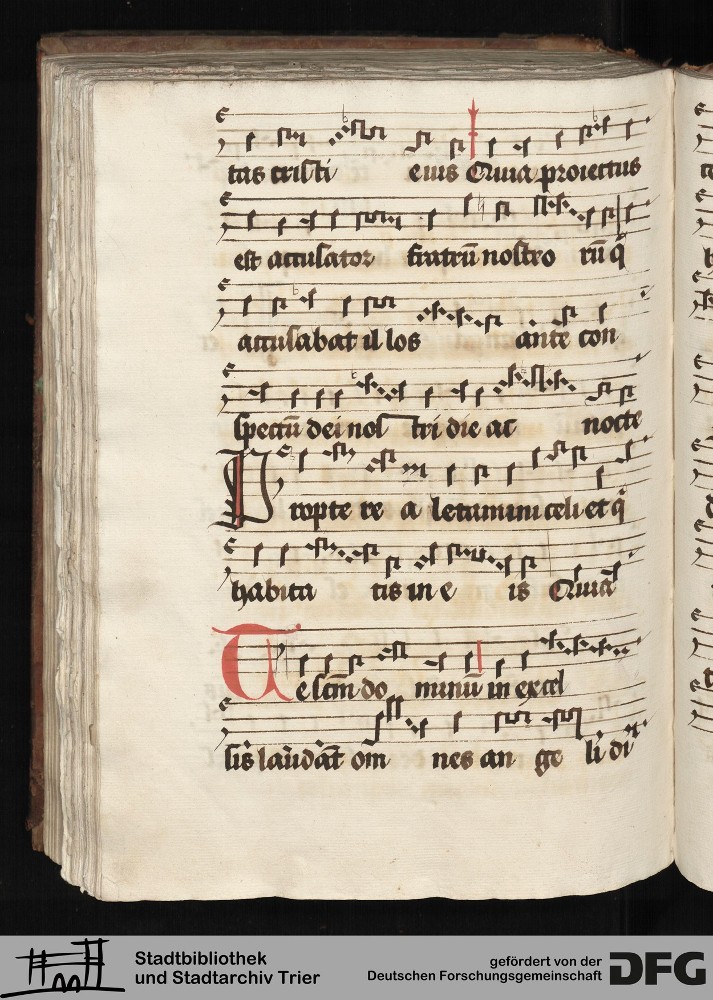 tas cristi eius Quia proiectus
est accusator fratrū nostro rū q̄
accusabat illos ante con
spectū dei nostri die ac nocte
Propterea letamini celi et q̄
habitatis in eis Quia
Te scm̄ dominū in excel
sis laudāt om̄nes angeli di
Stadtbibliothek
und Stadtarchiv Trier
gefördert von der
Deutschen Forschungsgemeinschaft
DFG